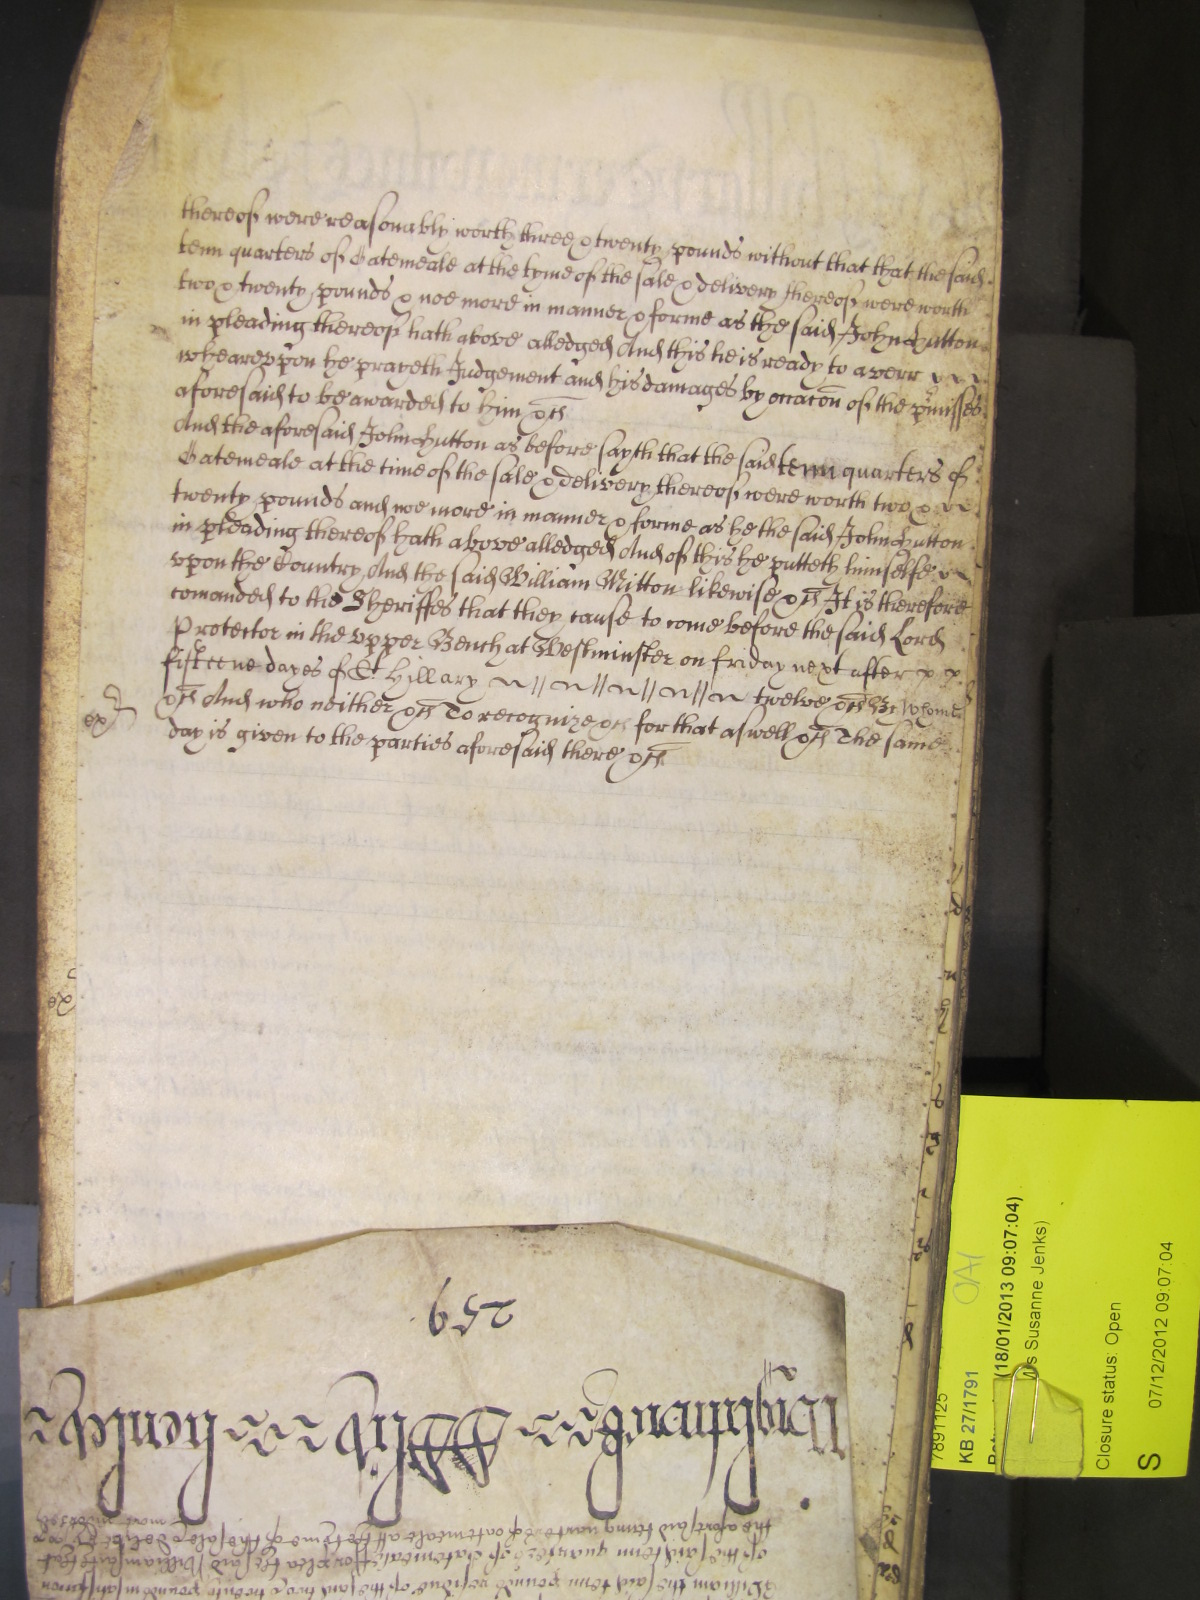 thereof were reasonably worth three & twenty pounds without that that the said
tenn quarters of Oatemeale at the tyme of the sale & delivery thereof were worth
two & twenty pounds & noe more in manner & forme as the said John Hutton
in pleading thereof hath above alledged And this he is ready to averr
wheareupon he prayeth Judgement and his damages by occacon of the pmisses
aforesaid to be awarded to him &c
And the aforesaid John Hutton as before sayth that the said tenn quarters of
Oatemeale at the time of the sale & delivery thereof were worth two &
twenty pounds and noe more in manner & forme as he the said John Hutton
in pleading thereof hath above alledged And of this he putteth himselfe
vpon the Country And the said William Mitton likewise &c It is therefore
comanded to the Sheriffes that they cause to come before the said Lord
Protector in the vpper Bench at Westminster on friday next after
fifteene dayes of St Hillary twelve &c By whome
&c And who neither &c To recognize &c for that aswell &c The same
day is given to the parties aforesaid there &c
259
William the said tenn pounds residue of the said two & twenty pounds
of the said tenn quarters of Oatemeale
the aforesaid tenn quarters of oatemeale att the tyme of the sale & delivery
7891125
KB 27/1791
(18/01/2013 09:07:04)
s Susanne Jenks)
Closure status: Open
S
07/12/2012 09:07:04